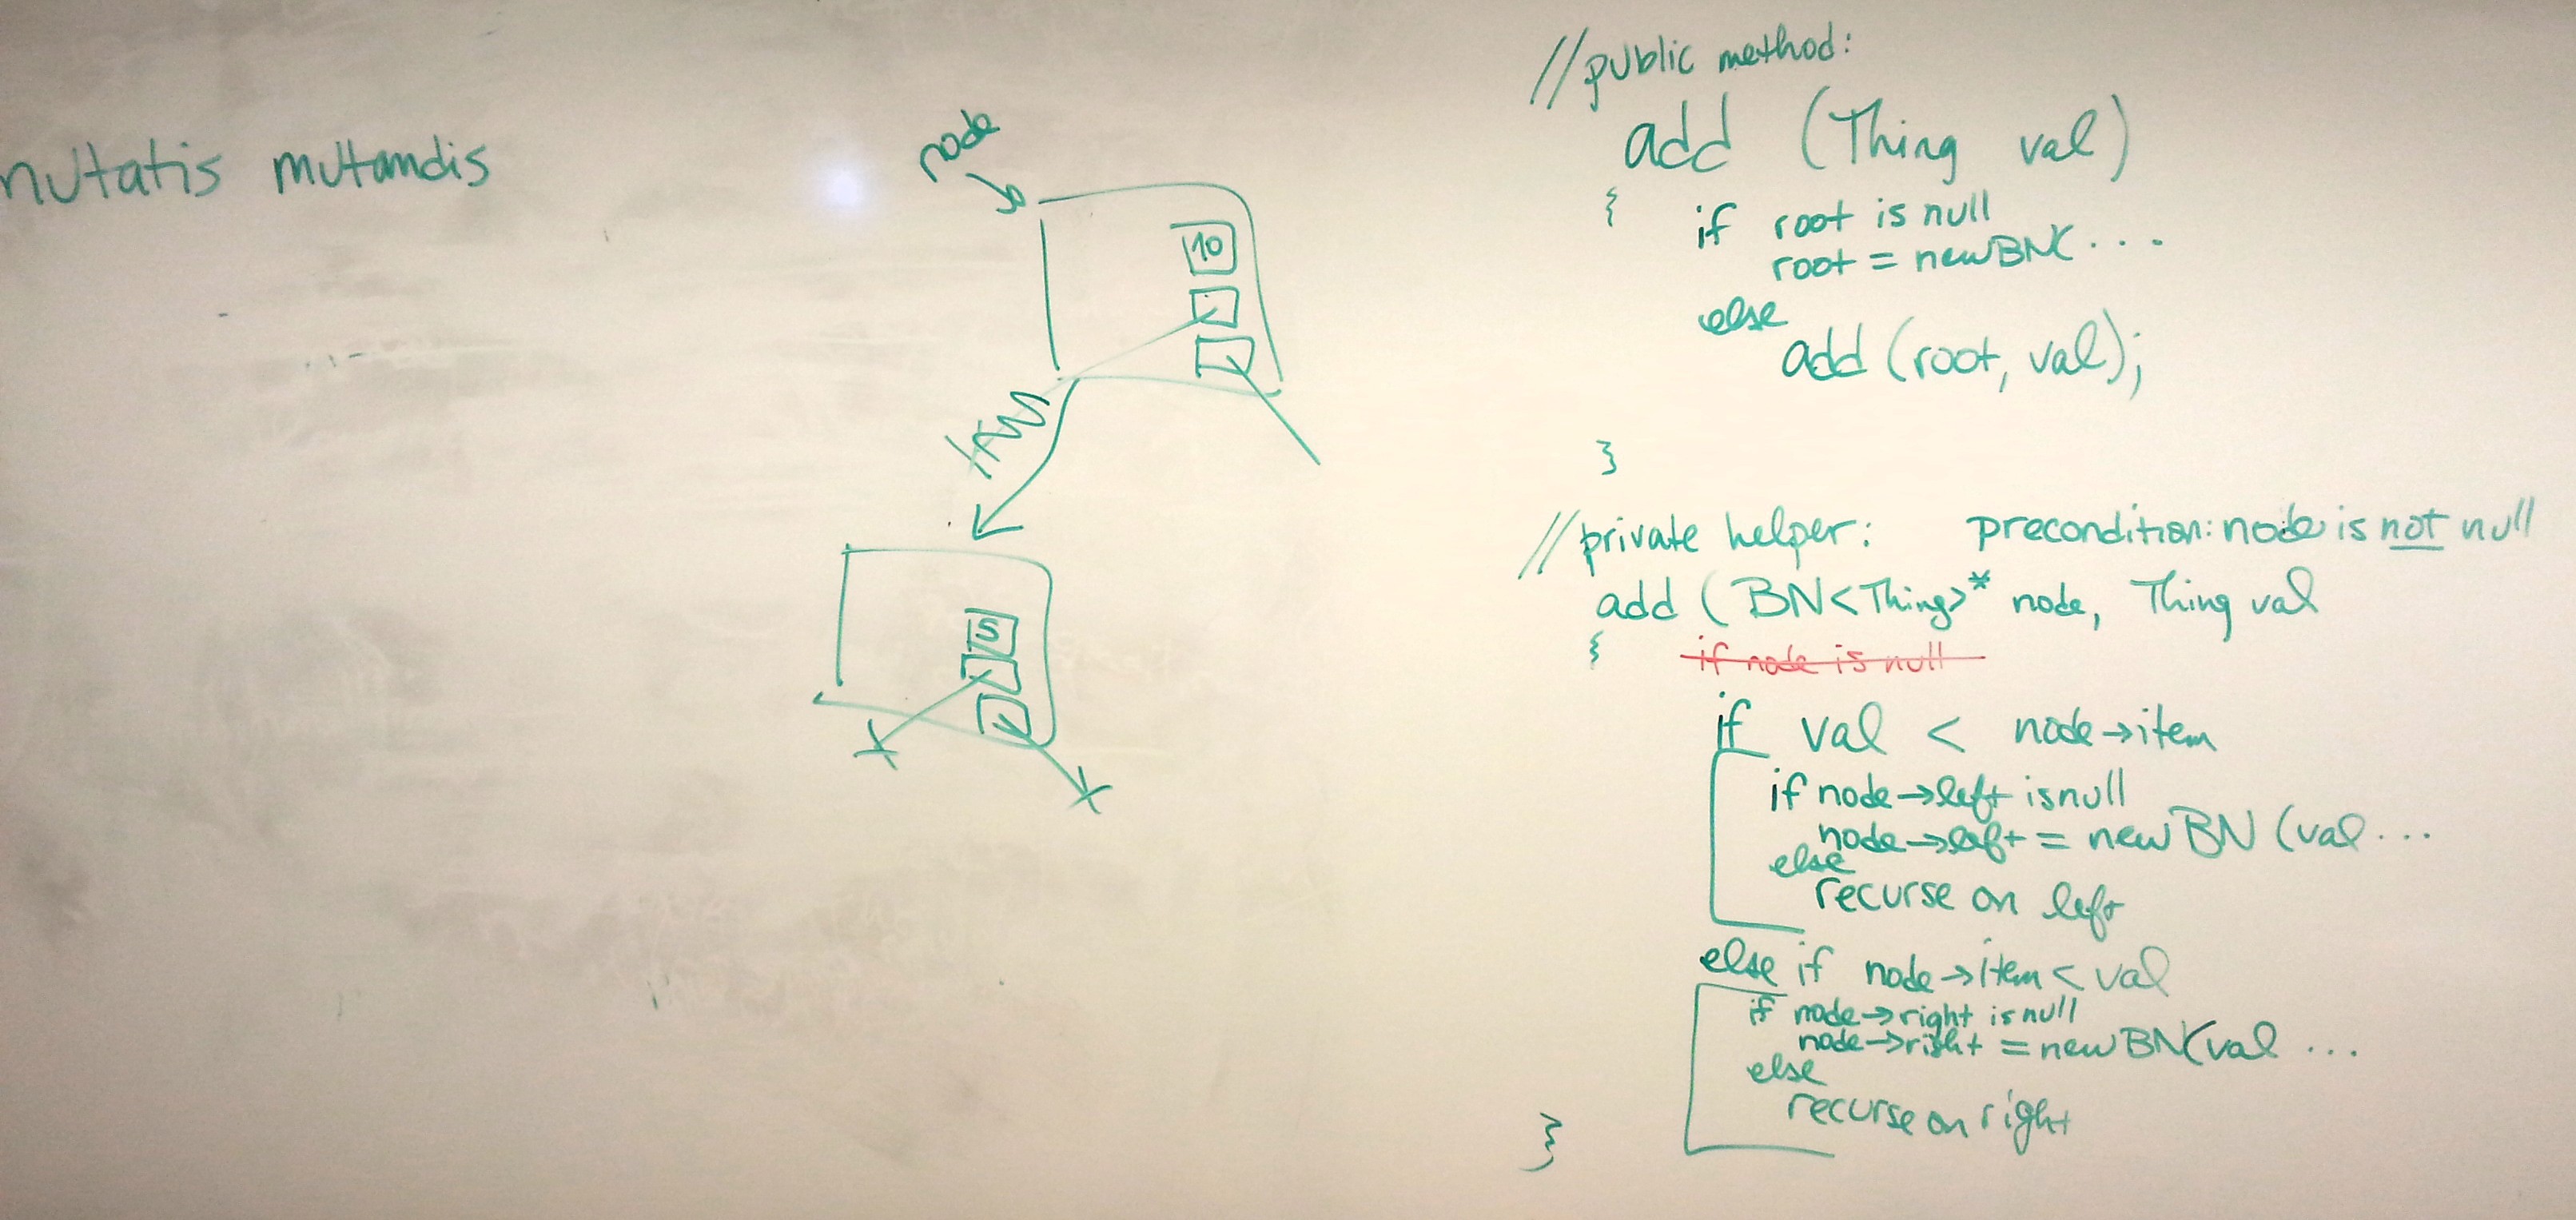 nutatis mutandis
node
10
5
//public method:
add (Thing val)
{ if root is null
root = new BN( ....
else
add (root, val);
}
//private helper: precondition: node is not null
add ( BN<Thing>* node, Thing val
{ if node is null
if val < node→item
if node→left is null
node→left = new BN (val ...
else
recurse on left
else if node→item < val
if node→right is null
node→right = new BN(val ...
else
recurse on right
}